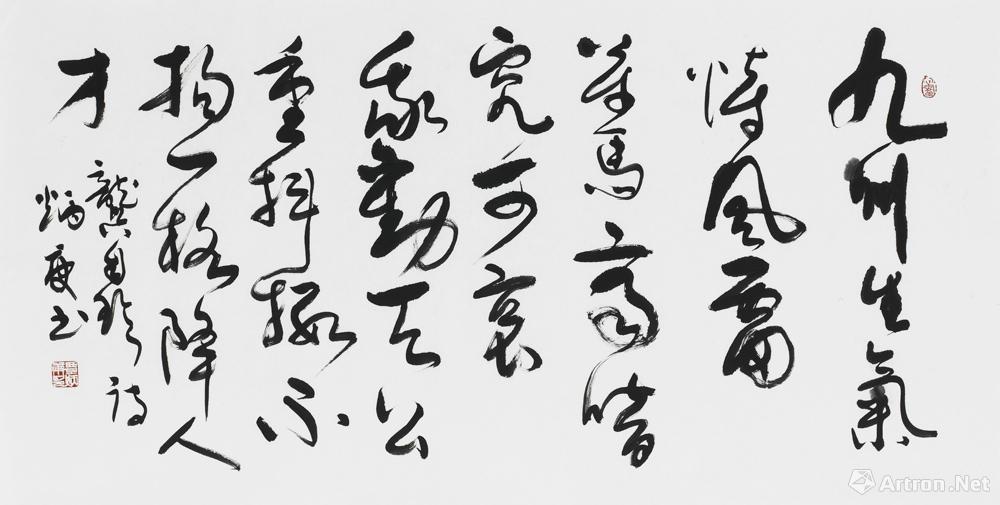 九州生氣
恃風雷
萬馬齊喑
究可哀
我勸天公
重抖擻不
拘一格降人
才
龔自珍詩
书
Artron.Net